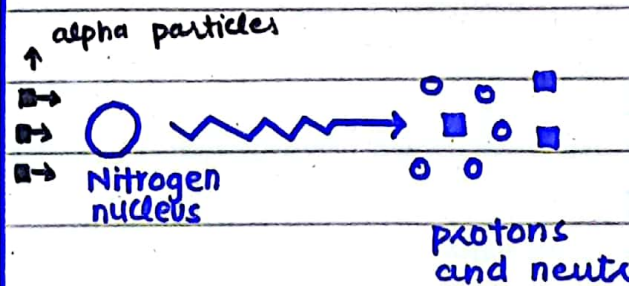 alpha particles
Nitrogen
nucleus
protons
and